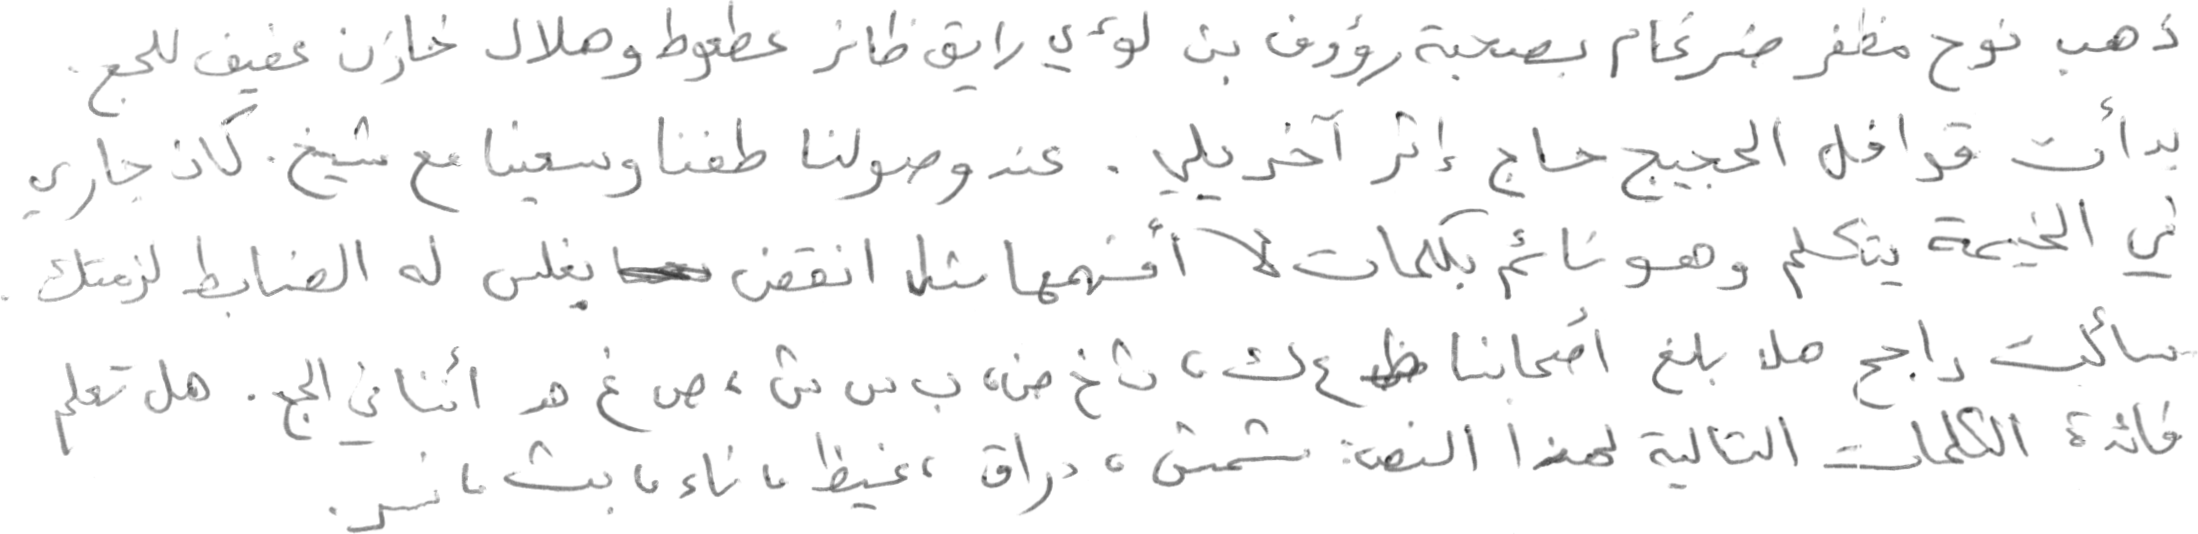 ذهب نوح مظفر ضرغام بصحبة رؤوف بن لؤي رايق ظافر عطعوط وهلال خازن عفيف للحج.
بدأت قوافل الحجيج حاج إثر آخر يلي. عند وصولنا طفنا وسعينا مع شيخ. كان جاري
في الخيمة يتكلم وهو نائم بكلمات لا أفهمها مثل انقض يغلس له الضابط لزمتك.
سألت راجح هلا بلغ أصحابنا ظ ع ك، ث خ ض، ب س ش، ص غ هـ أننا في الحج. هل تعلم
فائدة الكلمات التالية لهذا النص: شمش، دراق، غيظ، ناء، بث، نس.